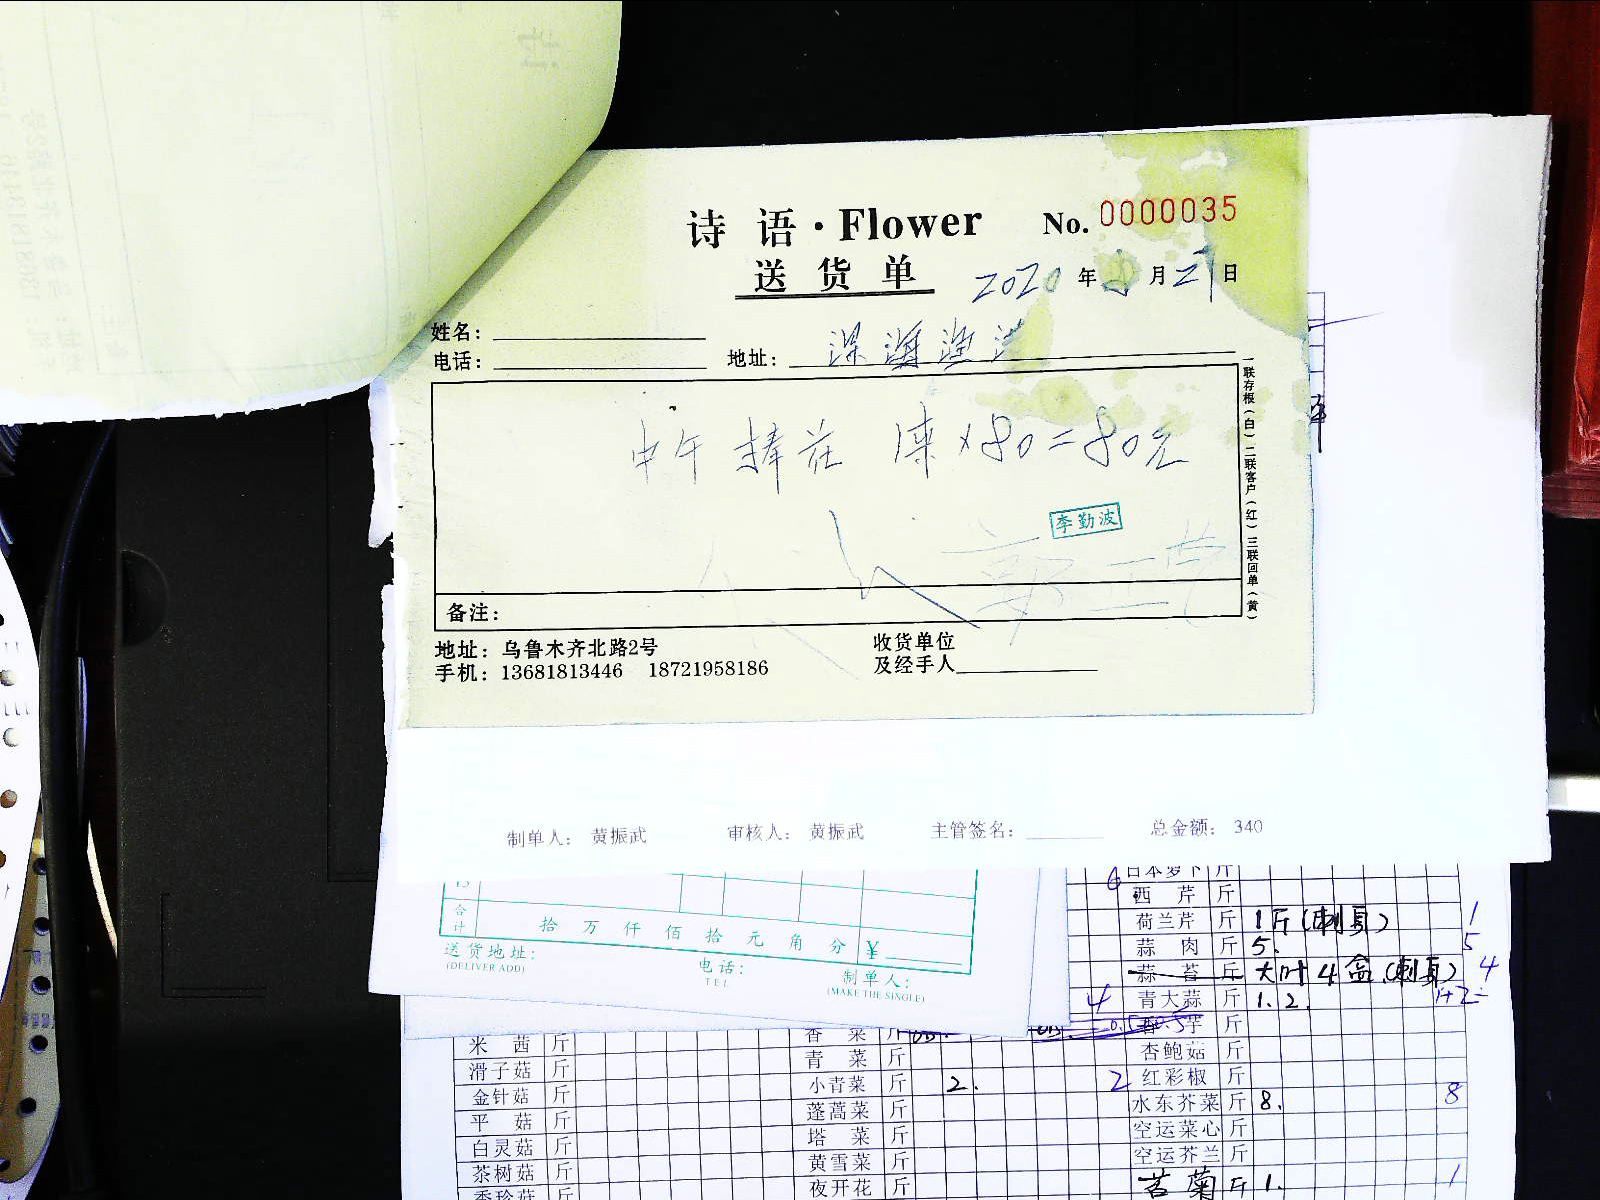 诗 语·Flower No. 0000035
送 货 单 2020 年 月 21 日
姓名：
电话： 地址： 深海渔港
中午 捧花 1束×80=80元
李勤波
备注：
一联存根（白）二联客户（红）三联回单（黄）
地址：乌鲁木齐北路2号 收货单位
手机：13681813446 18721958186 及经手人
制单人： 黄振武 审核人： 黄振武 主管签名： 总金额： 340
合计 拾 万 仟 佰 拾 元 角 分 ¥
送货地址：
(DELIVER ADD)
电话：
TEL
制单人：
(MAKE THE SINGLE)
6 日本萝卜 斤
西 芹 斤
荷兰芹 斤 1斤(刺身) 1
蒜 肉 斤 5. 5
蒜 苔 斤 大叶4盒.(刺身) 4
4 青大蒜 斤 1.2. 1+2=
香芋 斤
杏鲍菇 斤
2 红彩椒 斤
水东芥菜 斤 8. 8
空运菜心 斤
空运芥兰 斤
苦菊 斤 1. 1
香 菜 斤
青 菜 斤
小青菜 斤 2.
蓬蒿菜 斤
塔 菜 斤
黄雪菜 斤
夜开花 斤
米 茜 斤
滑子菇 斤
金针菇 斤
平 菇 斤
白灵菇 斤
茶树菇 斤
秀珍菇 斤